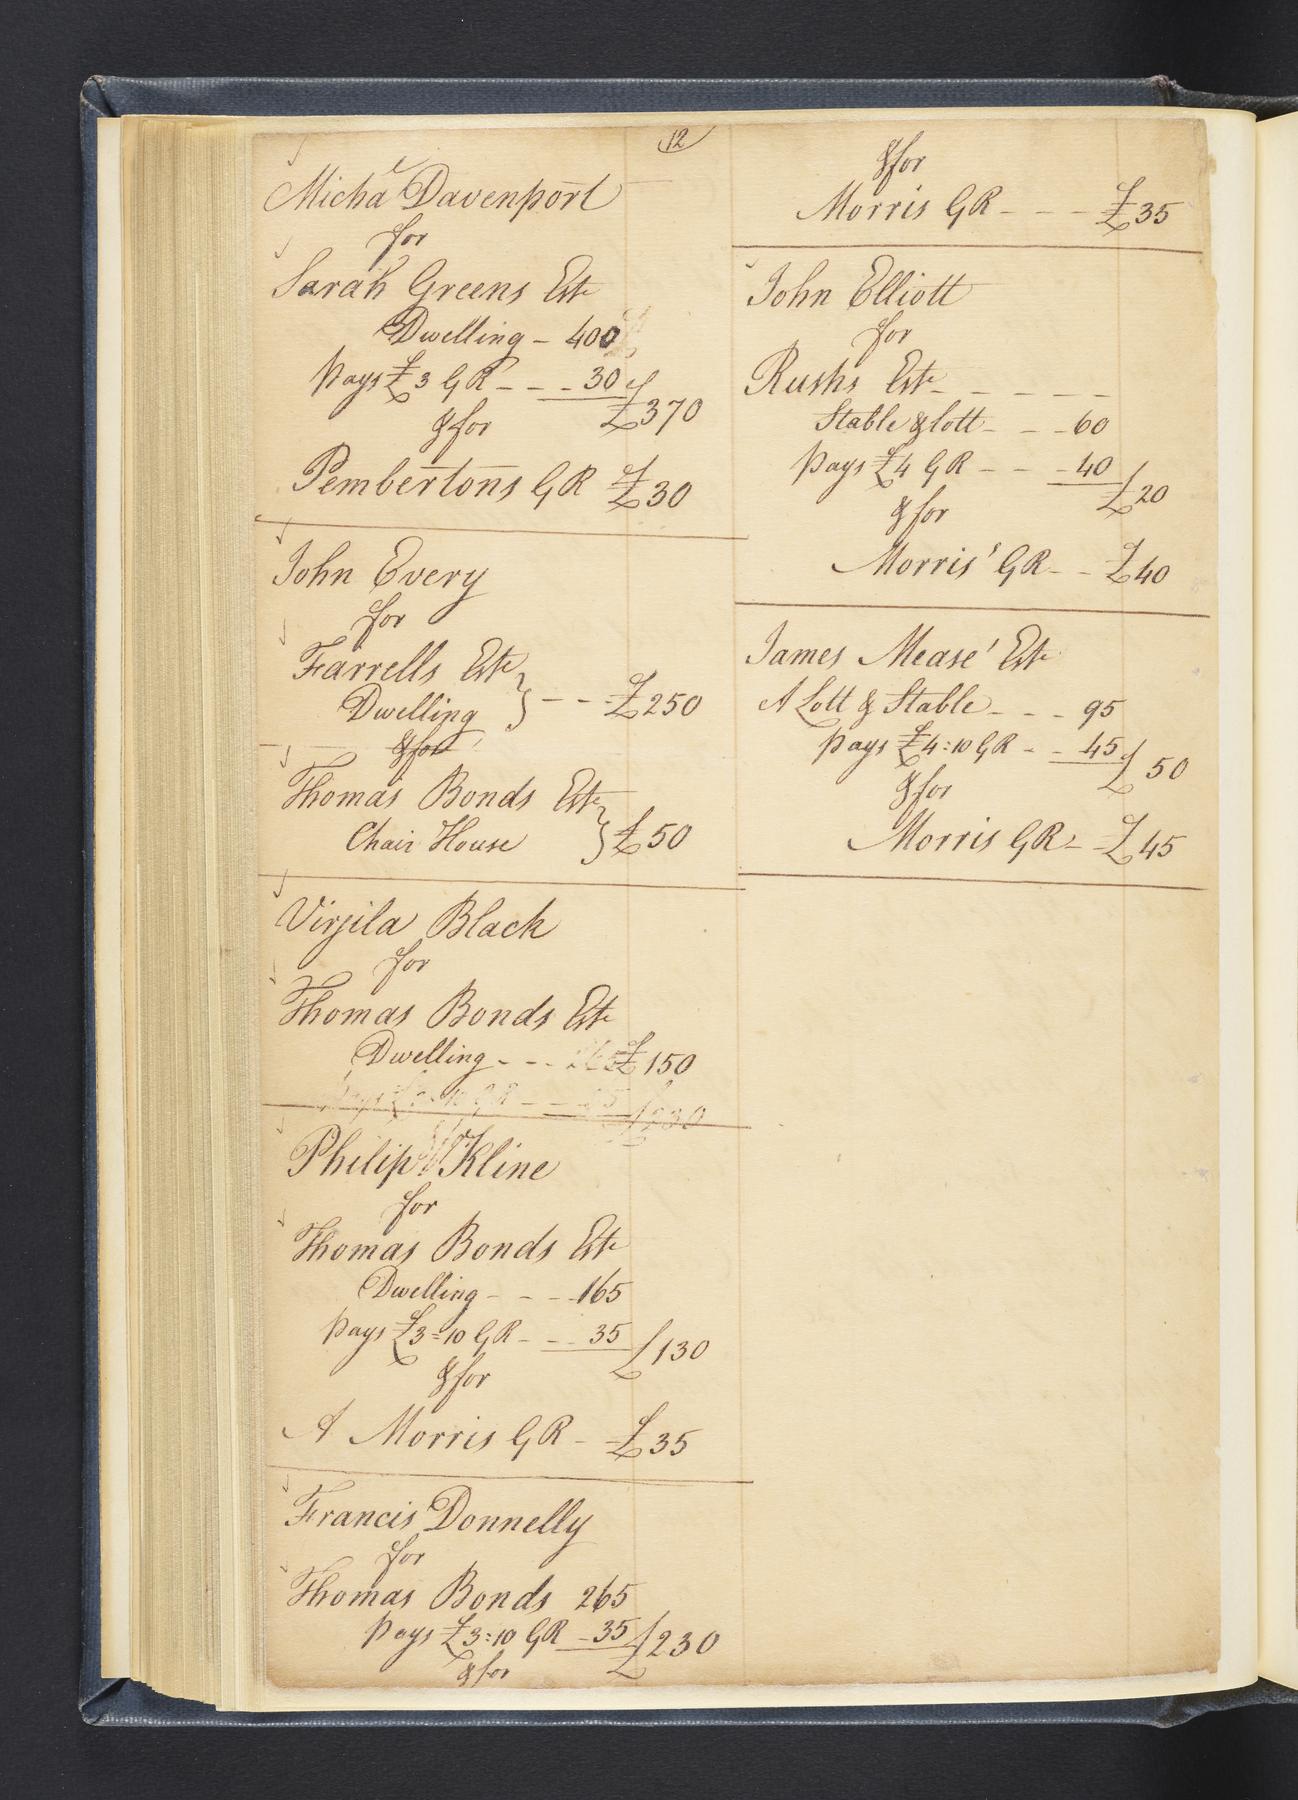 12
Micha^l Davenport
for
Sarah Greens Est
Dwelling - 400
pays £3 GR - - - 30
£370
& for
Pembertons GR £30
John Every
for
Farrells Est
Dwelling } - - - £250
& for
Thomas Bonds Est
Chair House } £50
Virjila Black
for
Thomas Bonds Est
Dwelling - - - £150
pays £3=10 GR - - 35
£230
Philip Kline
for
Thomas Bonds Est
Dwelling - - - 165
pays £3=10 GR - - - 35
£130
& for
A Morris GR - £35
Francis Donnelly
for
Thomas Bonds 265
pays £3:10 GR - 35
£230
& for
& for
Morris GR - - - £35
John Elliott
for
Rushs Est - - - - -
Stable & lott - - - 60
pays £4 GR - - - 40
£20
& for
Morris' GR - - £40
James Mease' Est
A Lott & Stable - - - 95
pays £4:10 GR - - 45
£50
& for
Morris GR - £45